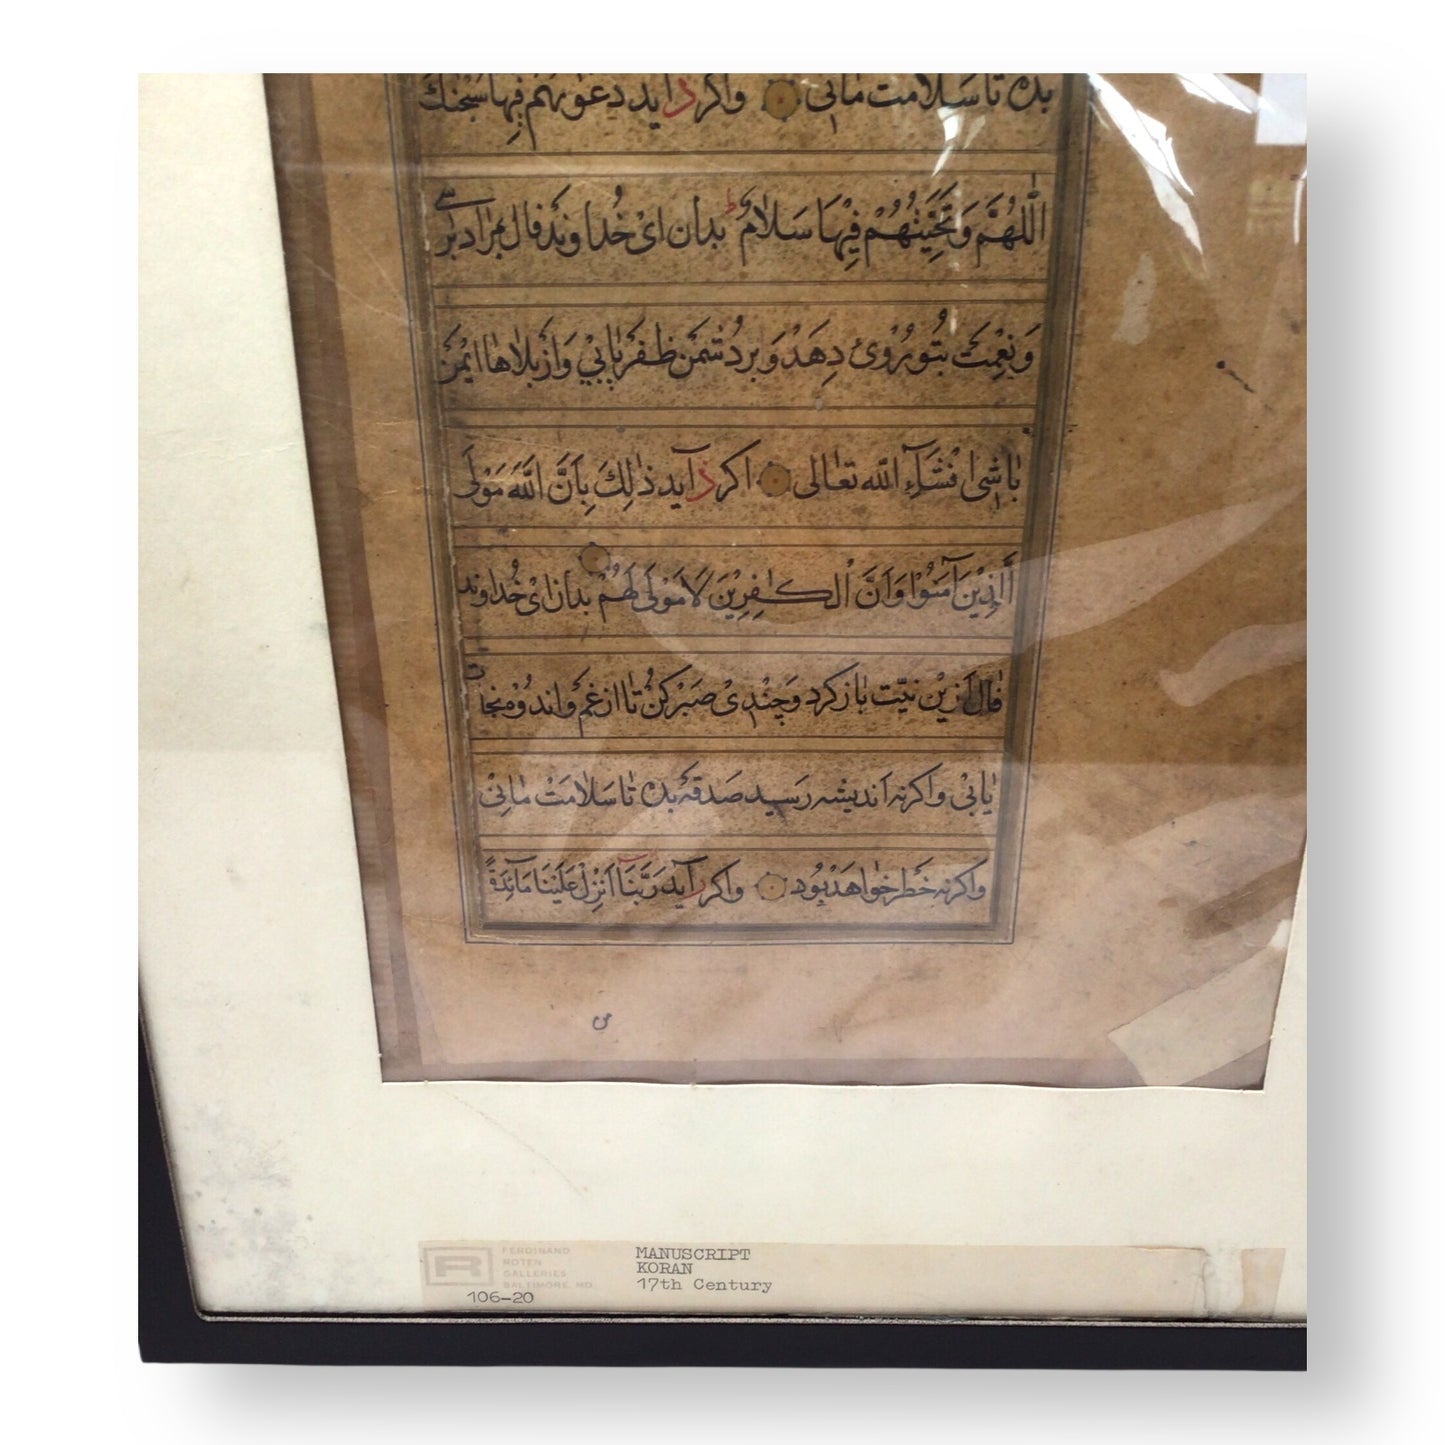 بده تا سلامت مانی واکر د اید دعوىهم فیها سبحنك
اللّٰهُمَّ وَتَحِیَّتُهُمْ فِیْهَا سَلَامٌ بدان ایْ خُداوندْ فال بمراد بر
وَنِعْمَتْ بَتُو رُوْیْ دِهَدْ وَبردُشمَنْ ظفرْ یابیْ وَازْبَلاهَا ایْمَنْ
باشی انْشَآءَ اللّٰه تعالی اکر د آید ذٰلِكَ بِاَنَّ اللّٰهَ مَوْلَی
الَّذِیْنَ آمَنُوْا وَاَنَّ الْكٰفِرِیْنَ لَا مَوْلَی لَهُمْ بدان ایْ خُداوند
فال ازیْن نیّت باز کرد وَچَنْدیْ صَبْر کُنْ تا از غَمْ و اندُوْه نجا
یابیْ واکرنه اندیشه رسید صدقه بده تا سلامَتْ مانیْ
واکرنه خَطَر خواهَدْ بُود واکر د آید رَبَّنَا اَنْزِلْ عَلَیْنَا مَآئِدَةً
FERDINAND
ROTEN
GALLERIES
BALTIMORE, MD.
R
106-20
MANUSCRIPT
KORAN
17th Century